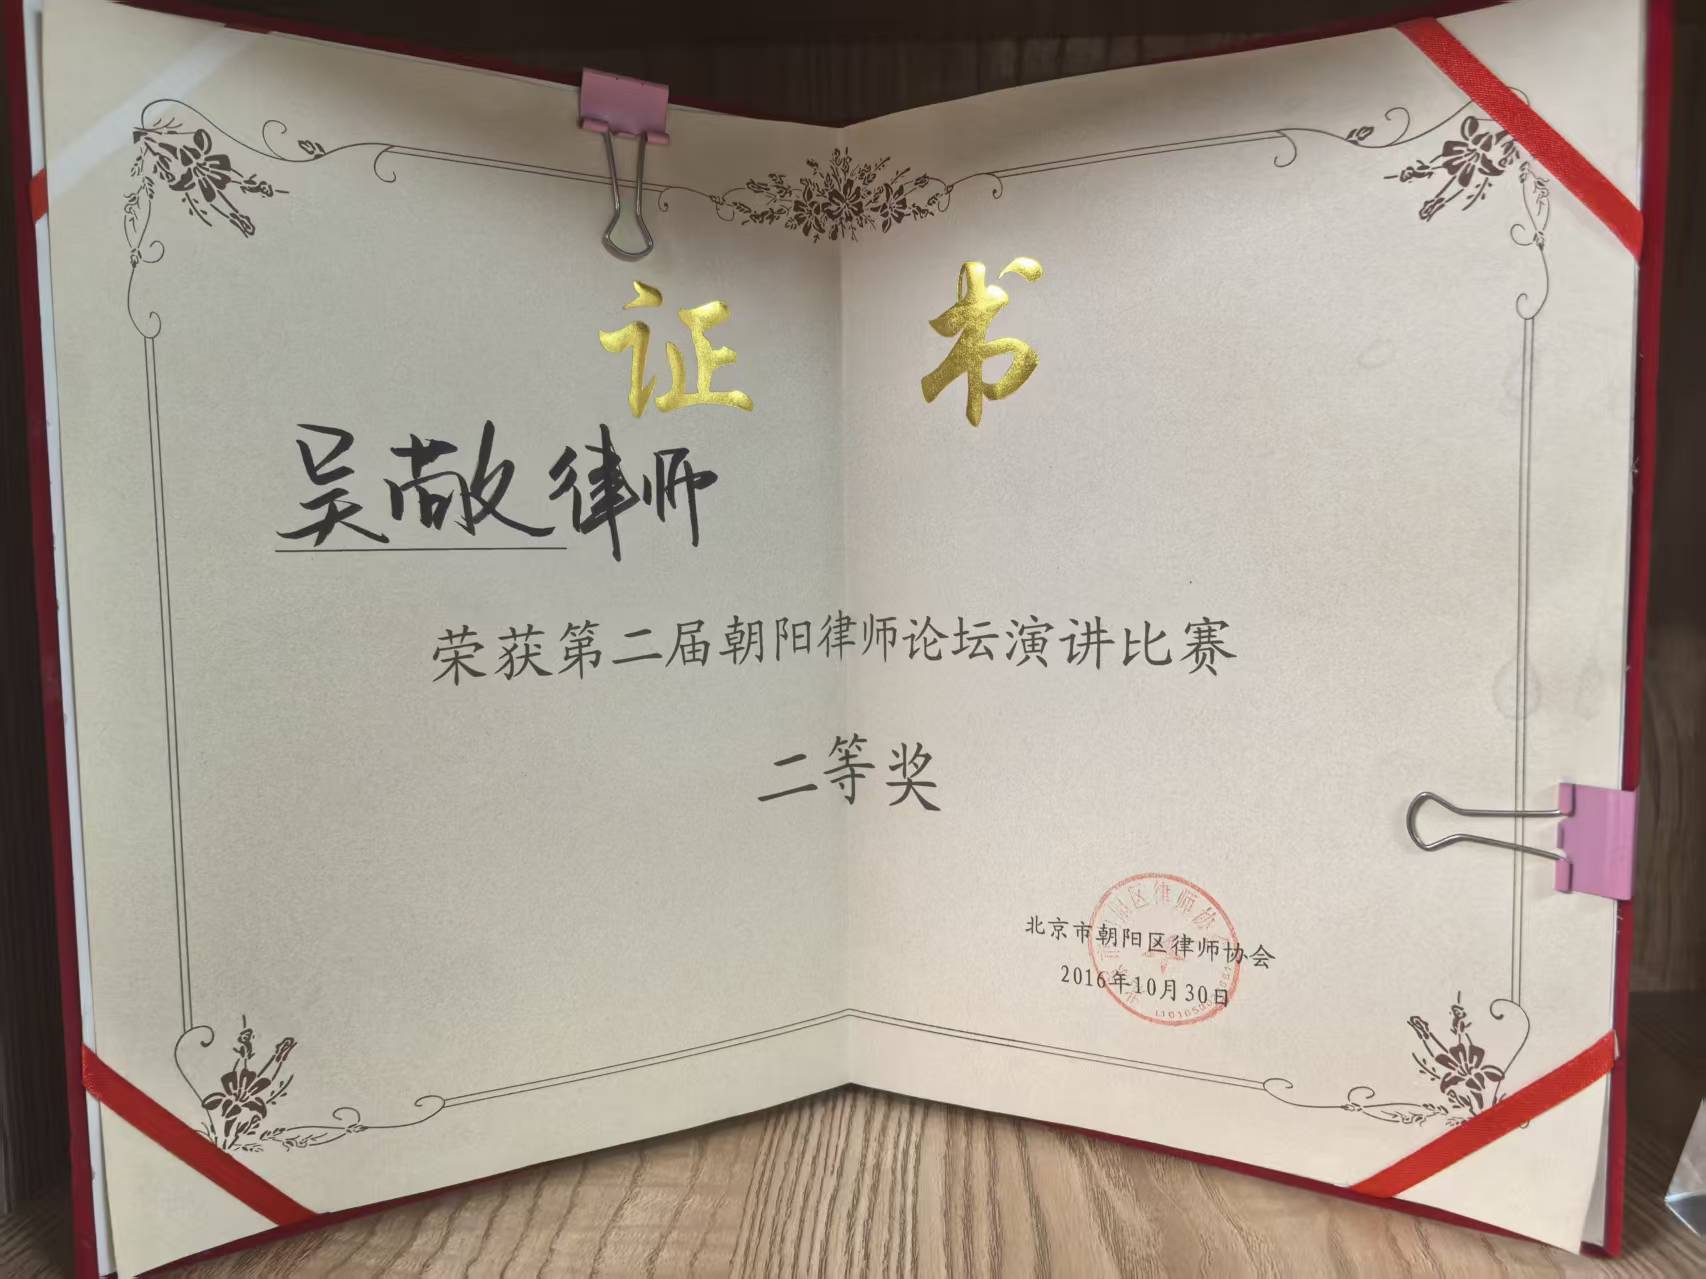 证书
吴敞律师
荣获第二届朝阳律师论坛演讲比赛
二等奖
北京市朝阳区律师协会
2016年10月30日